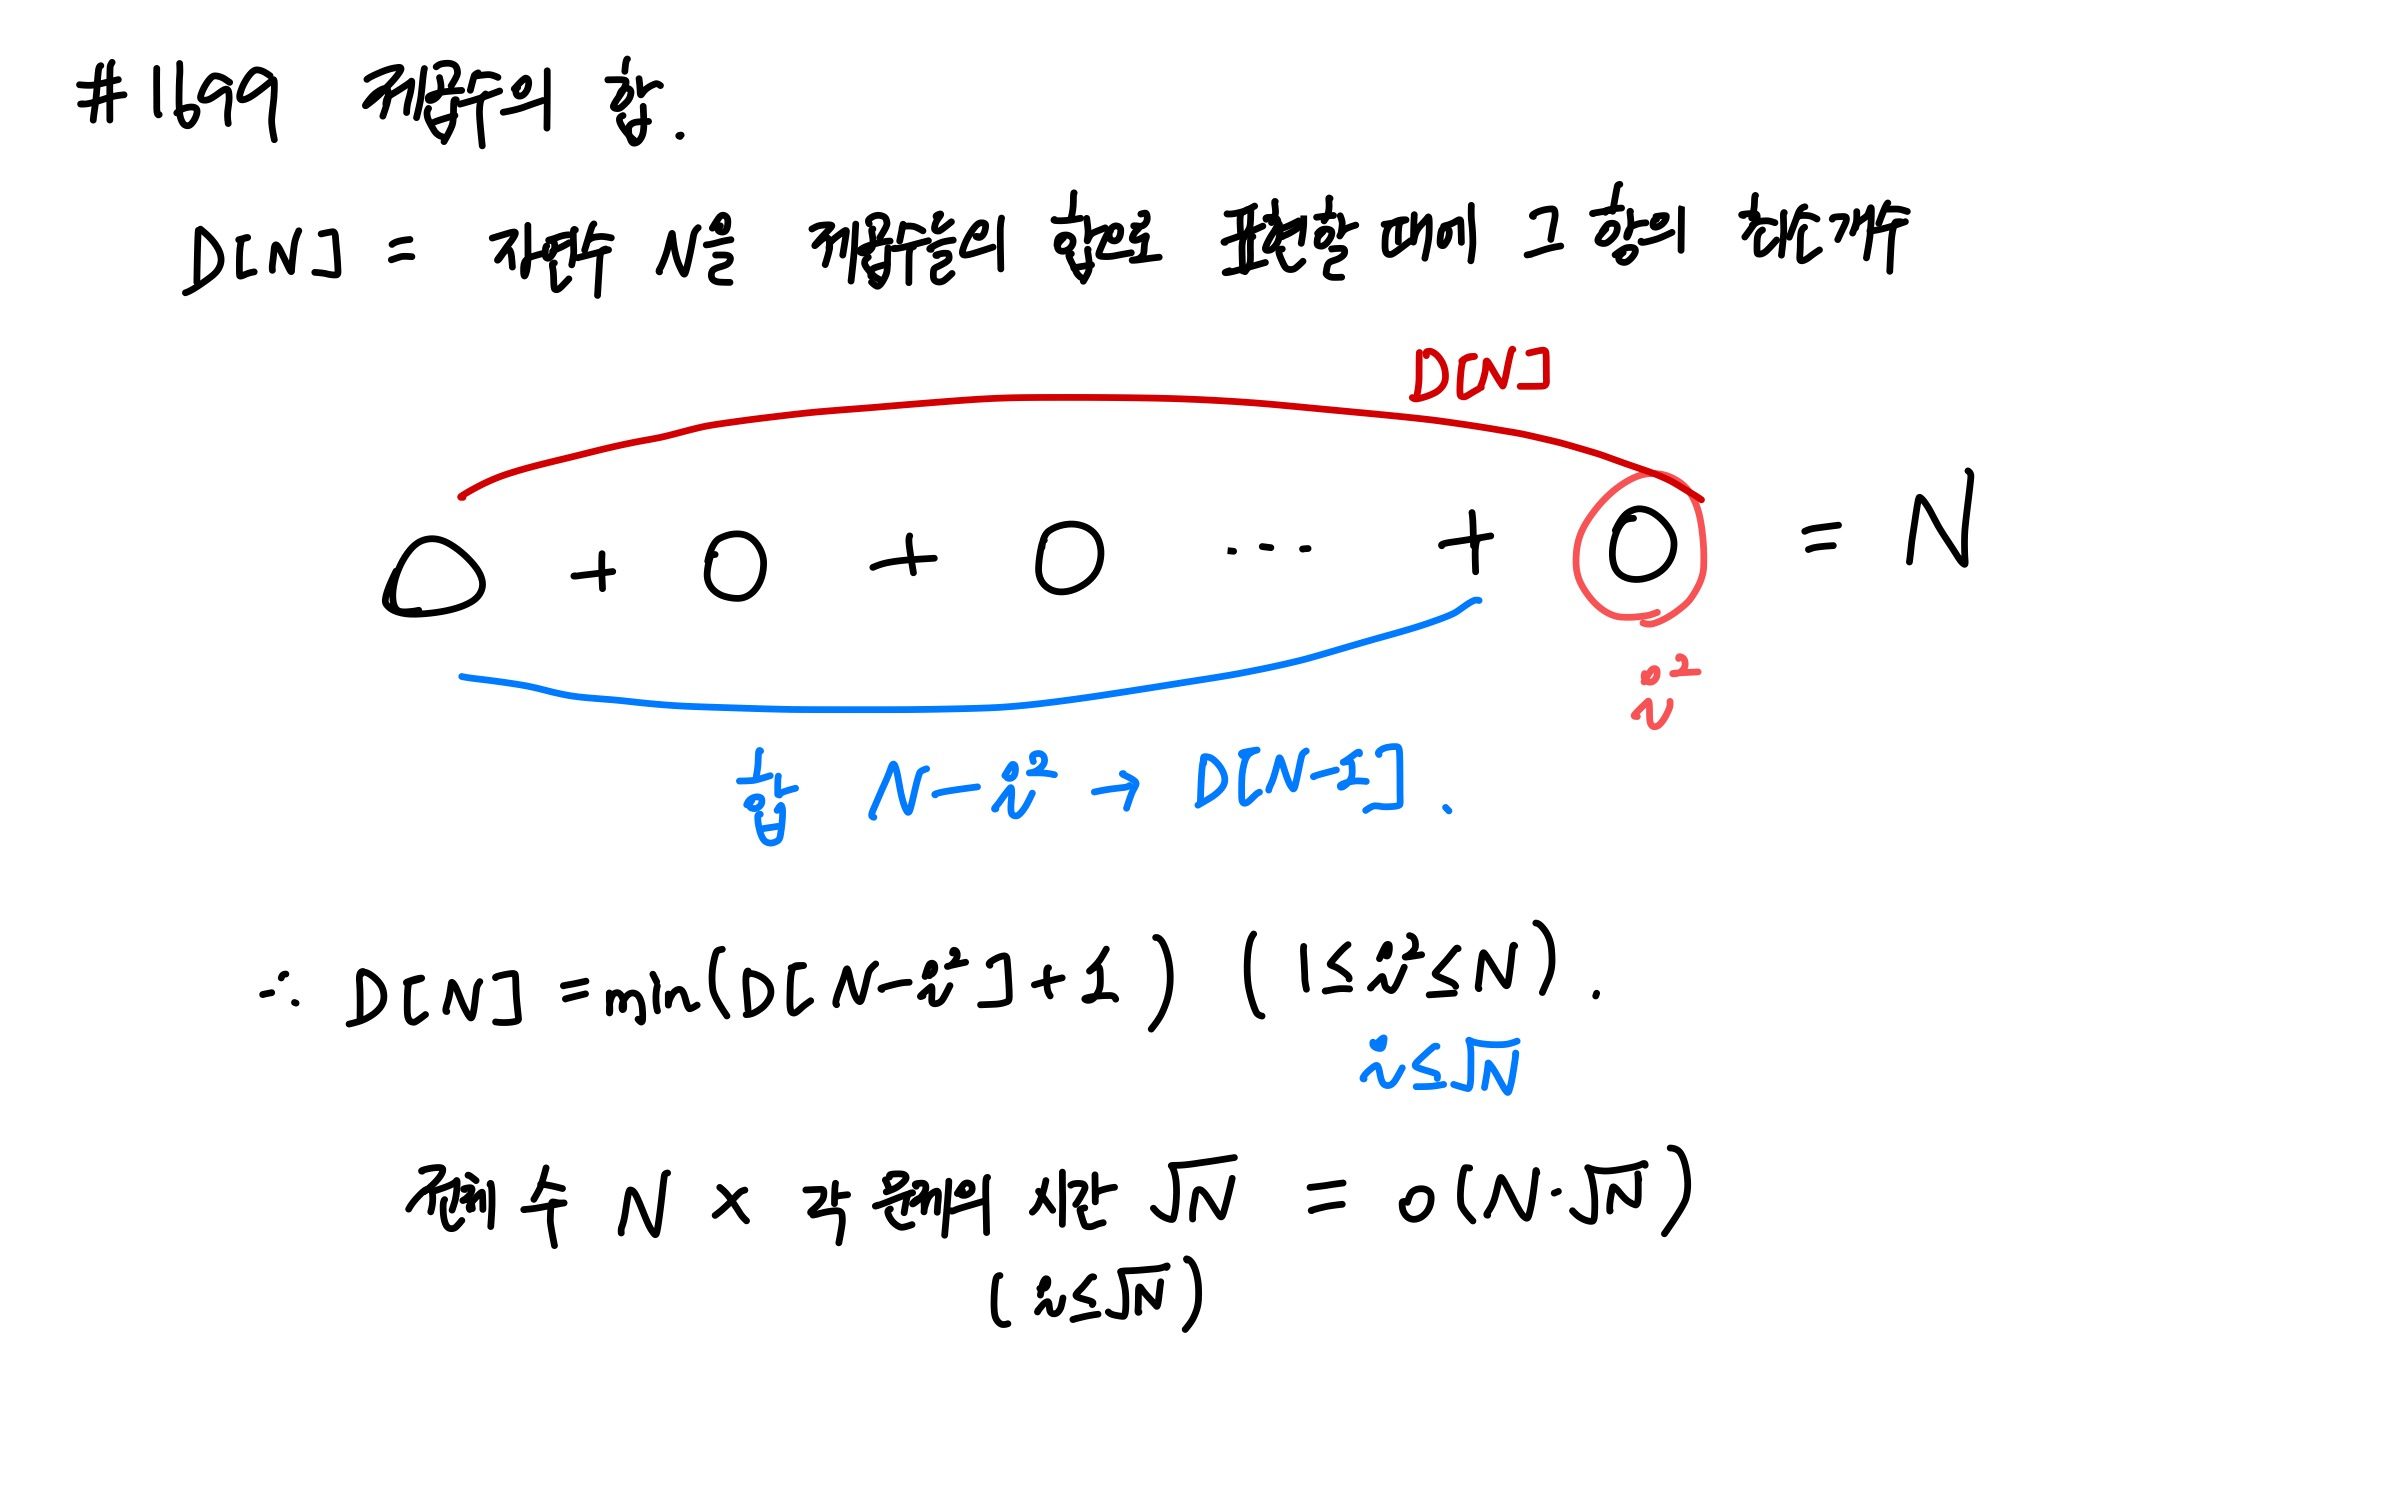 #1699 제곱수의 합.
D[N] = 자연수 N을 제곱수들의 합으로 표현할 때에 그 합의 최소개수
D[N]
O + O + O ... + O = N
i²
합 N-i² → D[N-1].
∴ D[N] = min(D[N-i²]+1) (1≤i²≤N).
i≤√N
전체 수 N × 각 칸에서 시간 √N = O(N·√N)
(i≤√N)